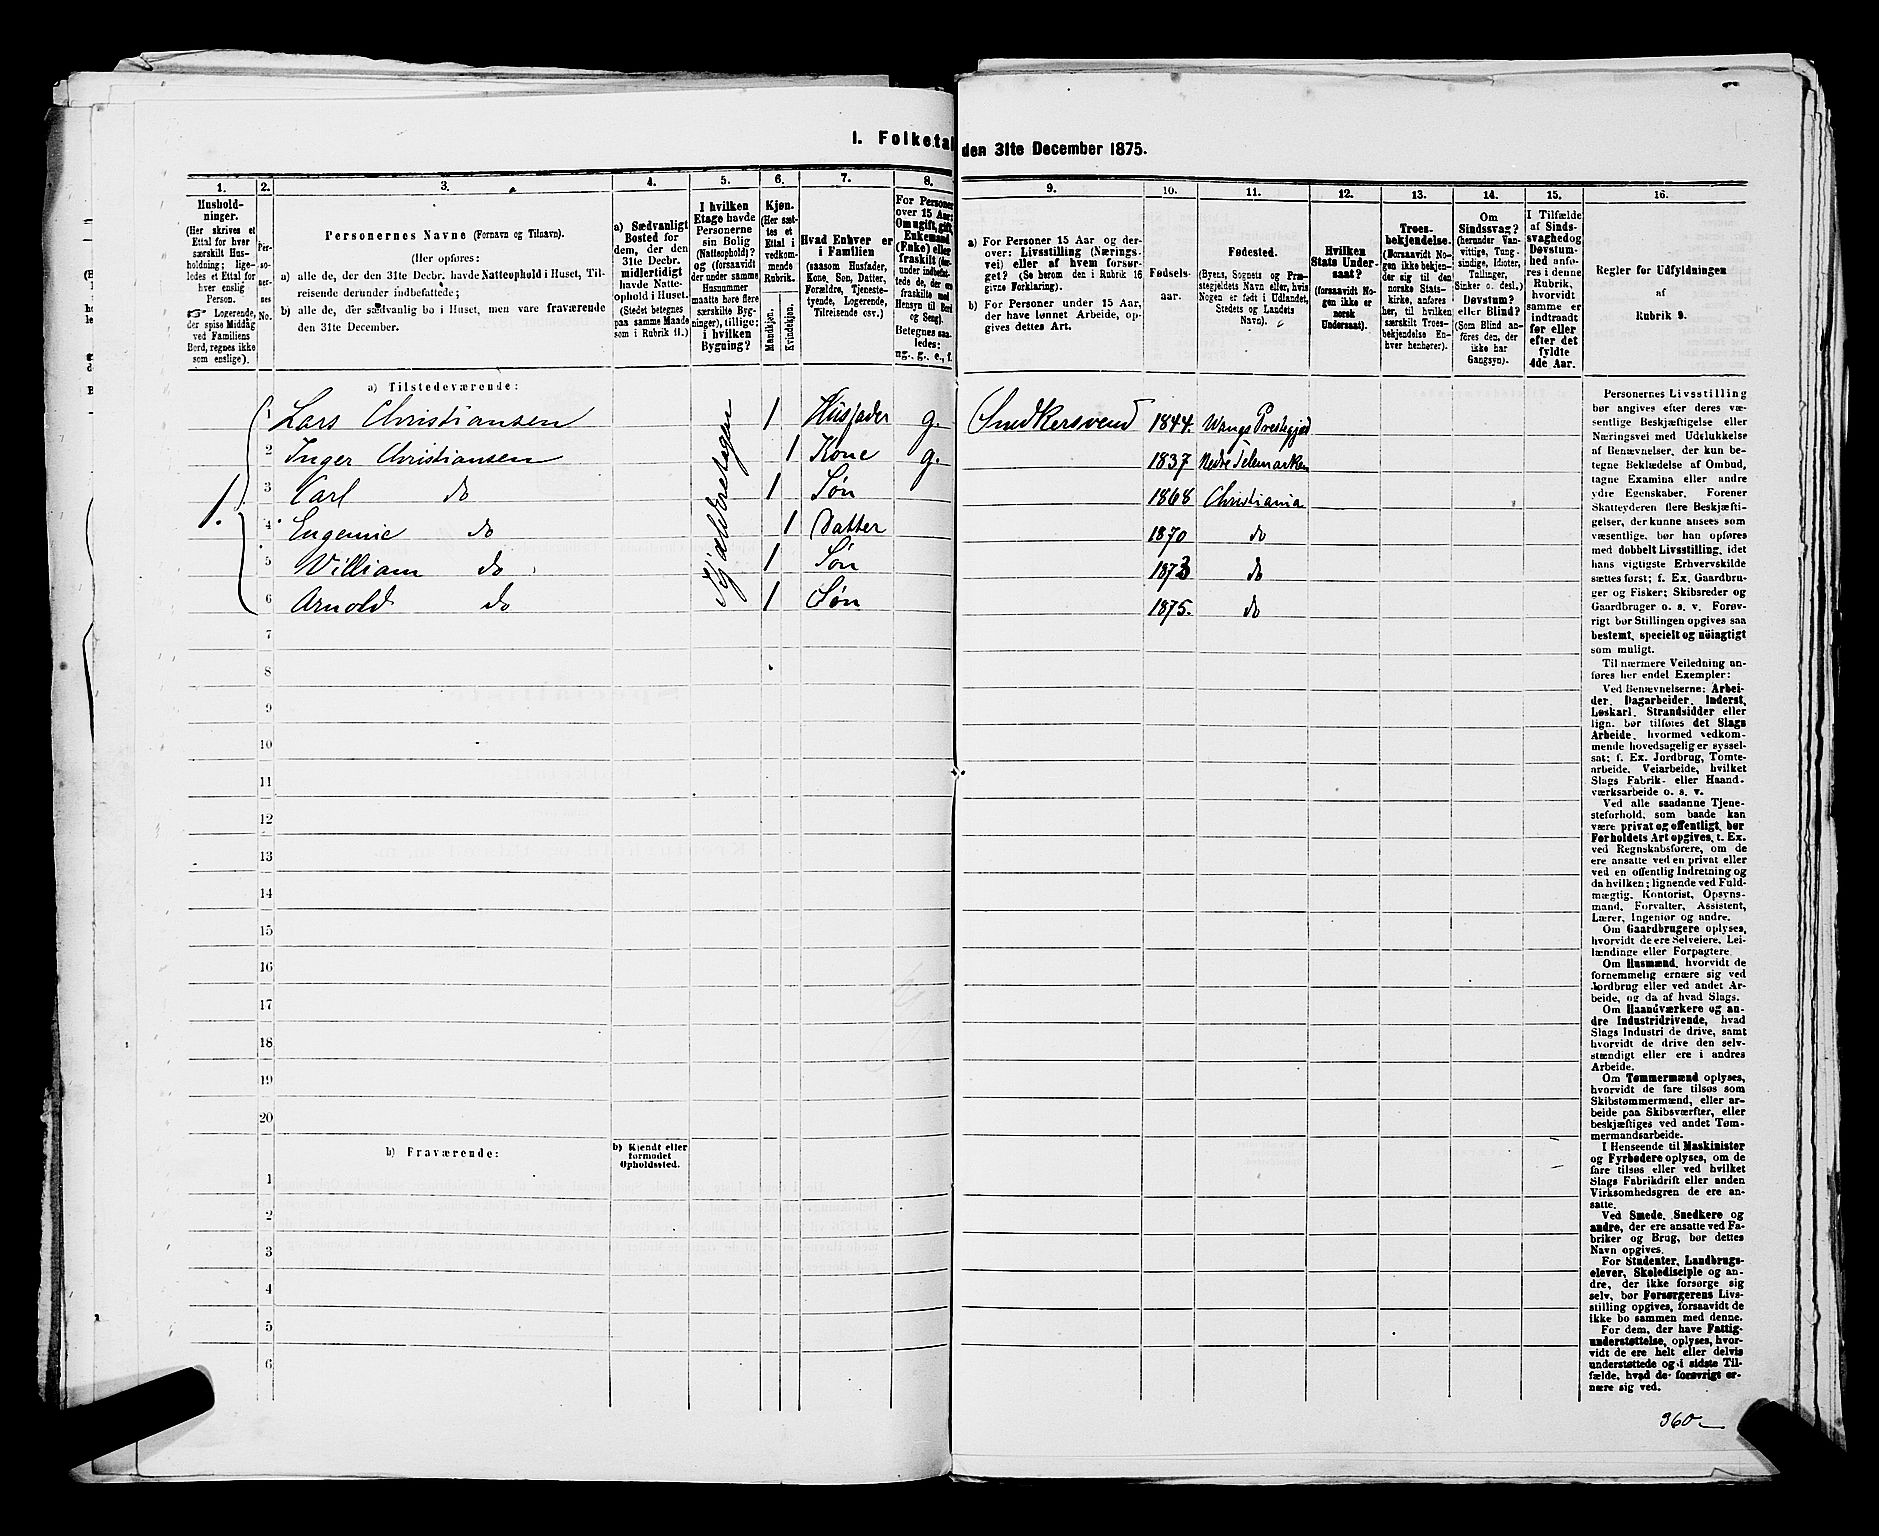 I. Folketal den 31te December 1875.
1. 2. 3. 4. 5. 6. 7. 8. 9. 10. 11. 12. 13. 14. 15. 16.
Husholdninger.
(Her skrives et
Ettal for hver
særskilt Husholdning; ligeledes
et Ettal for
hver enslig
Person.
Logerende,
der spise Middag
ved Familiens
Bord, regnes ikke
som enslige).
Personernes No.
Personernes Navne (Fornavn og Tilnavn).
(Her opføres:
a) alle de, der den 31te Decbr. havde Natteophold i Huset, Tilreisende derunder indbefattede;
b) alle de, der sædvanlig bo i Huset, men vare fraværende
den 31te December.
a) Sædvanligt
Bosted for
dem, der den
31te Decbr.
midlertidigt
havde Natteophold i Huset.
(Stedet betegnes
paa samme Maade
som i Rubrik 11.)
I hvilken
Etage havde
Personerne
sin Bolig
(Natteophold)?
og (forsaavidt
der under samme
Husnummer
maatte høre flere
særskilte Bygninger), tillige:
i hvilken
Bygning?
Kjøn.
(Her sættes et
Ettal i
vedkommende
Rubrik.
Mandkjøn.
Kvindekjøn.
Hvad Enhver er
i Familien
(saasom Husfader,
Kone, Søn, Datter,
Forældre, Tjenestetyende, Logerende,
Tilreisende osv.)
For Personer
over 15 Aar:
Om ugift, gift,
Enkemand
(Enke) eller
fraskilt
Betegnes saaledes:
ug., g., e., f.
a) For Personer 15 Aar og derover: Livsstilling (Næringsvei) eller af hvem forsørget? (Se herom den i Rubrik 16
givne Forklaring).
b) For Personer under 15 Aar,
der have lønnet Arbeide, opgives dettes Art.
Fødselsaar.
Fødested.
(Byens, Sognets og Præstegjeldets Navn eller, hvis
Nogen er født i Udlandet,
Stedets og Landets
Navn).
Hvilken
Stats Undersaat?
(forsaavidt Nogen ikke er
norsk
Undersaat).
Troesbekjendelse.
(Forsaavidt Nogen ikke bekjender sig til den
norske Statskirke, anføres
her, til hvilken
særskilt Troesbekjendelse Enhver henhører).
Om
Sindssvag?
(herunder Vanvittige, Tungsindige, Idioter,
Tullinger,
Sinker o. desl.)
Døvstum?
eller Blind?
(Som Blind anføres den, der
ikke har
Gangsyn).
I Tilfælde
af Sindssvaghed og
Døvstumhed anføres i denne
Rubrik,
hvorvidt
samme er
indtraadt
før eller
efter det
fyldte
4de Aar.
Regler for Udfyldningen
af
Rubrik 9.
a) Tilstedeværende:
1.
1 Lars Christiansen Kjælderetagen 1 Husfader g. Snedkersvend 1844. Wangs Prestegjæld
2 Inger Christiansen 1 Kone g. 1837 Nedre Telemarken
3 Carl do 1 Søn 1868 Christiania
4 Eugenie do 1 Datter 1870 do
5 Villiam do 1 Søn 1873 do
6 Arnold do 1 Søn 1875. do
7
8
9
10
11
12
13
14
15
16
17
18
19
20
b) Fraværende:
b) Kjendt eller
formodet
Opholdssted.
1
2
3
4
5
6
Personernes Livsstilling
bør angives efter deres væsentlige Beskjæftigelse eller
Næringsvei med Udelukkelse
af Benævnelser, der kun betegne Beklædelse af Ombud,
tagne Examina eller andre
ydre Egenskaber. Forener
Skatteyderen flere Beskjæftigelser, der kunne ansees som
væsentlige, bør han opføres
med dobbelt Livsstilling, idet
hans vigtigste Erhvervskilde
sættes først; f. Ex. Gaardbruger og Fisker; Skibsreder og
Gaardbruger o. s. v. Forøvrigt bør Stillingen opgives saa
bestemt, specielt og nøiagtigt
som muligt.
Til nærmere Veiledning anføres her endel Exempler:
Ved Benævnelserne: Arbeider, Dagarbeider, Inderst,
Løskarl, Strandsidder eller
lign. bør tilføies det Slags
Arbeide, hvormed vedkommende hovedsagelig er sysselsat; f. Ex. Jordbrug, Tomtearbeide, Veiarbeide, hvilket
Slags Fabrik- eller Haandværksarbeide o. s. v.
Ved alle saadanne Tjenesteforhold, som baade kan
være privat og offentligt, bør
Forholdets Art opgives, t. Ex.
ved Regnskabsførere, om de
ere ansatte ved en privat eller
ved en offentlig Indretning og
da hvilken; lignende ved Fuldmægtig, Kontorist, Opsynsmand, Forvalter, Assistent,
Lærer, Ingeniør og andre.
Om Gaardbrugere oplyses,
hvorvidt de ere Selveiere, Leilændinge eller Forpagtere.
Om Husmænd, hvorvidt de
fornemmelig ernære sig ved
Jordbrug eller ved andet Arbeide, og da af hvad Slags.
Om Haandværkere og andre Industridrivende, hvad
Slags Industri de drive, samt
hvorvidt de drive den selvstændigt eller ere i andres
Arbeide.
Om Tømmermænd oplyses,
hvorvidt de fare tilsøs som
Skibstømmermænd, eller arbeide paa Skibsværfter, eller
beskjæftiges ved andet Tømmermandsarbeide.
I Henseende til Maskinister
og Fyrbødere oplyses, om de
fare tilsøs eller ved hvilket
Slags Fabrikdrift eller anden
Virksomhedsgren de ere ansatte.
Ved Smede, Snedkere og
andre, der ere ansatte ved Fabriker og Brug, bør dettes
Navn opgives.
For Studenter, Landbrugselever, Skoledisciple og andre, der ikke forsørge sig
selv, bør Forsørgerens Livsstilling opgives, forsaavidt de
ikke bo sammen med denne.
For dem, der have Fattigunderstøttelse, oplyses, hvorvidt de ere helt eller delvis
understøttede og i sidste Tilfælde, hvad de forøvrigt ernære sig ved.
360